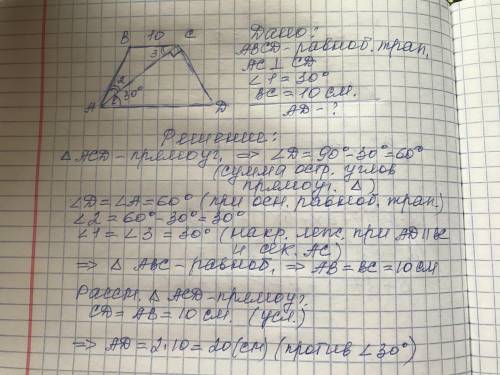 B 10 C
3
2
1 30°
A D
Дано:
ABCD - равноб. трап,
AC ⊥ CD
∠1 = 30°
BC = 10 см.
AD - ?
Решение:
△ ACD - прямоуг, => ∠D = 90° - 30° = 60°
(сумма остр. углов
прямоуг. △)
∠D = ∠A = 60° (при осн. равноб. трап.)
∠2 = 60° - 30° = 30°
∠1 = ∠3 = 30° (накр. леж. при AD || BC
и сек. AC)
=> △ ABC - равноб, => AB = BC = 10 см
Рассм. △ ACD - прямоуг.
CD = AB = 10 см. (усл.)
=> AD = 2·10 = 20 (см) (против ∠30°)